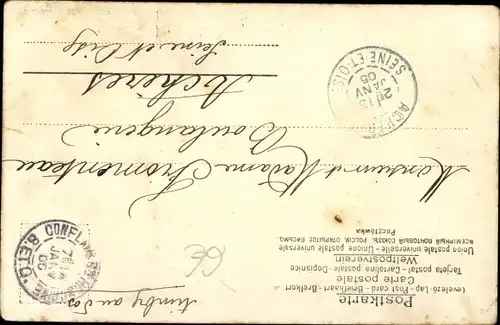 Postkarte
Levelezö-Lap - Post card - Briefkaart - Brefkort
Carte postale
Tarjeta postal - Cartolina postale - Dopisnice
Weltpostverein
Union postale universelle - Unione postale universale
ВСЕМІРНЫЙ ПОЧТОВЫЙ СОЮЗЪ. РОССІЯ. ОТКРЫТОЕ ПИСЬМО
Pocztówka
Monsieur et Madame Fromenteau
Boulangerie
Achères
Seine et Oise
6E
ACHÈR
SEINE ET OISE
2E 15
JANV
05
CONFLANS
JAN
05